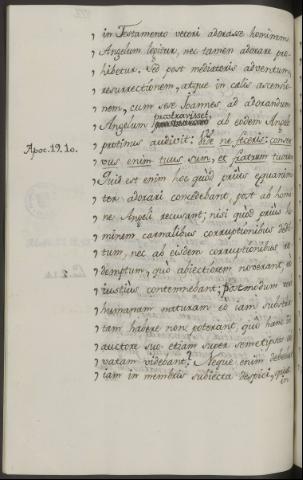 , in Testamento veteri adorasse hominem
, Angelum legitur, nec tamen adorare pro-
, hibetur. Sed post mediatoris adventum,
, resurrectionem, atque in cælis ascensio-
, nem, cum sese Joannes ad adorandum
prostravisset,
, Angelum ab eodem Angelo
Apoc. 19. 10.
, protinus audivit: vide ne feceris: conser-
, vus enim tuus sum, et fratrum tuorum
, Quid est enim hoc quod prius equanimi-
, ter adorari concedebant, post ab homi-
, ne Angeli recusant; nisi quod prius ho-
, minem carnalibus corruptionibus
, tum, nec ab eisdem corruptionibus re-
, demptum, quo abiectiorem noverant, eo
, iustius contemnebant; postmodum vero
, humanam naturam eo iam substra-
, tam habere non poterant, quo hanc in
, auctore suo etiam super semetipsos ele-
, vatam videbant? Neque enim debebat
, iam in membris subiecta despici, quæ
in